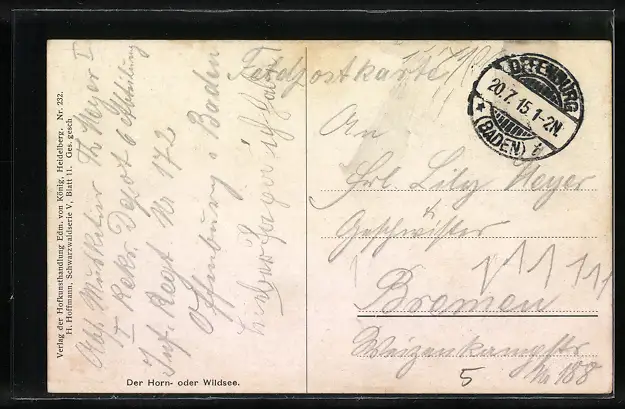 Verlag der Hofkunsthandlung Edm. von König, Heidelberg. Nr. 232.
H. Hoffmann, Schwarzwaldserie V, Blatt 11. Ges. gesch
Abs. Musketier H. Meyer I
I Rekr. Depot 6 Abteilung
Inf. Regt Nr 172
Offenburg i Baden
Der Horn- oder Wildsee.
Feldpostkarte
OFFENBURG
20.7.15.1-2N.
* (BADEN) *
An
Frl. Lily Meyer
Geschwister
Bremen
Weizenkampstr
No 188
5